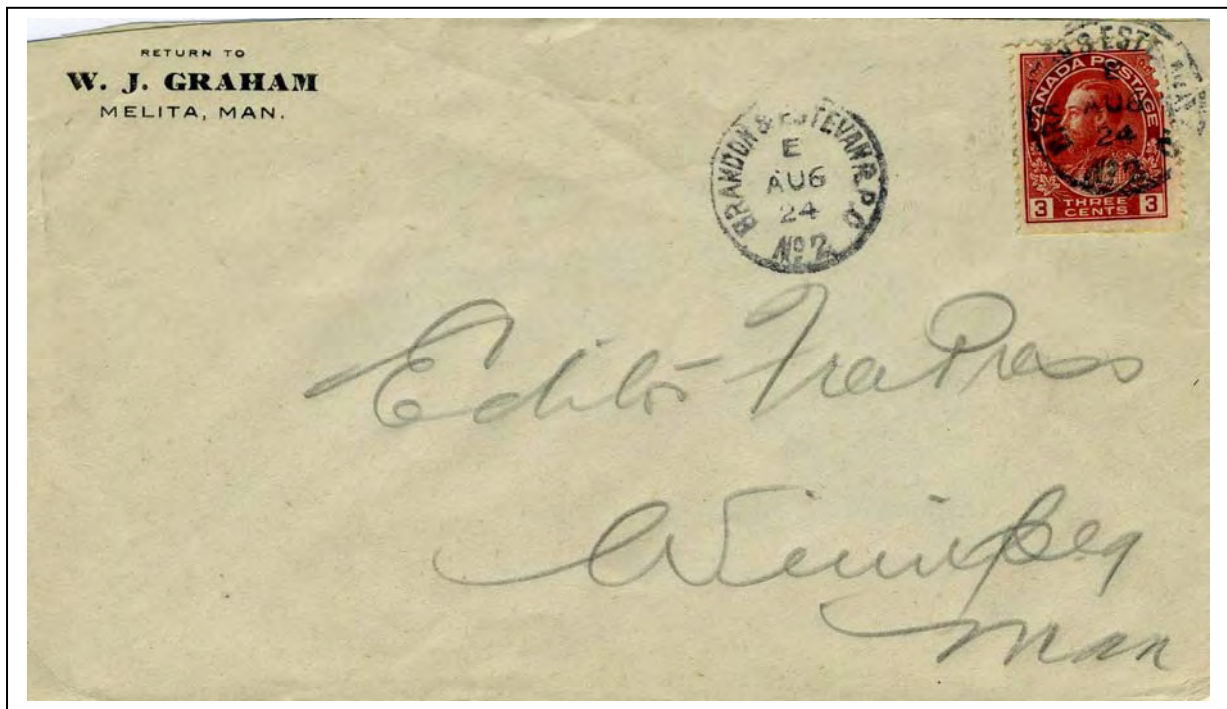 RETURN TO
W. J. GRAHAM
MELITA, MAN.
BRANDON & ESTEVAN R.P.O
E
AU6
24
No 2
& ESTEVAN
E
AU6
24
No 2
CANADA POSTAGE
3 THREE CENTS 3
Editor Free Press
Winnipeg
Man